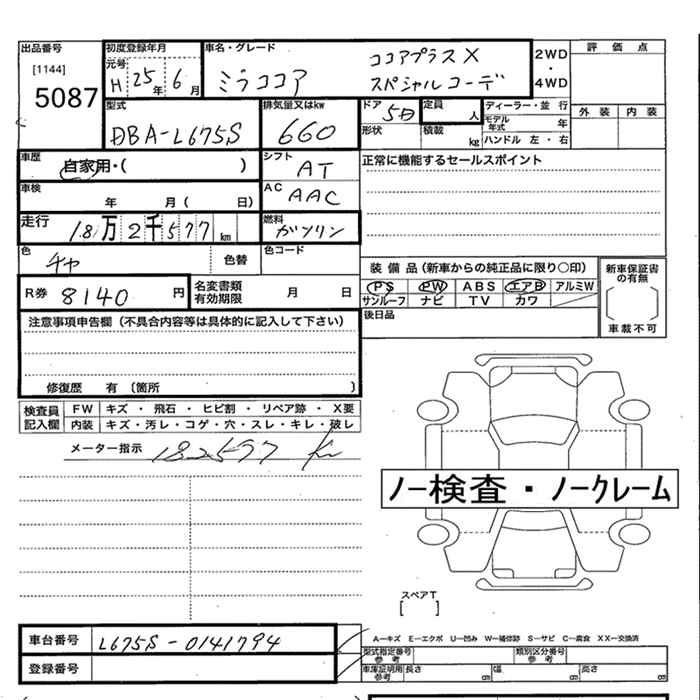 出品番号 初度登録年月 車名・グレード 2WD・4WD 評価点
[1144] 元号 H 25年 6月 ミラココア ココアプラスX
5087 スペシャルコーデ
型式 排気量又はkw ドア 5D 定員 人 ディーラー・並行 外装 内装
DBA-L675S 660 形状 積載 kg モデル年式 年
ハンドル 左・右
車歴 自家用・( ) シフト AT 正常に機能するセールスポイント
車検 年 月( 日) AC AAC
走行 18万2千577km 燃料 ガソリン
色 チャ 色替 色コード
装備品(新車からの純正品に限り○印) 新車保証書の有無
PS PW ABS エアB アルミW
R券 8140円 名変書類有効期限 月 日 サンルーフ ナビ TV カワ 車載不可
注意事項申告欄(不具合内容等は具体的に記入して下さい) 後日品
修復歴 有(箇所 )
検査員記入欄 FW キズ・飛石・ヒビ割・リペア跡・X要
内装 キズ・汚レ・コゲ・穴・スレ・キレ・破レ
メーター指示 182577 K
ノー検査・ノークレーム
スペアT
[ ]
車台番号 L675S-0141794 A-キズ E-エクボ U-凹み W-補修跡 S-サビ C-腐食 XX-交換済
登録番号 型式指定番号 参考 類別区分番号 参考
車庫証明用 参考 長さ 幅 高さ